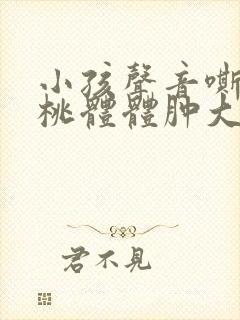 小孩聲音嘶
桃體體肿大
君不見